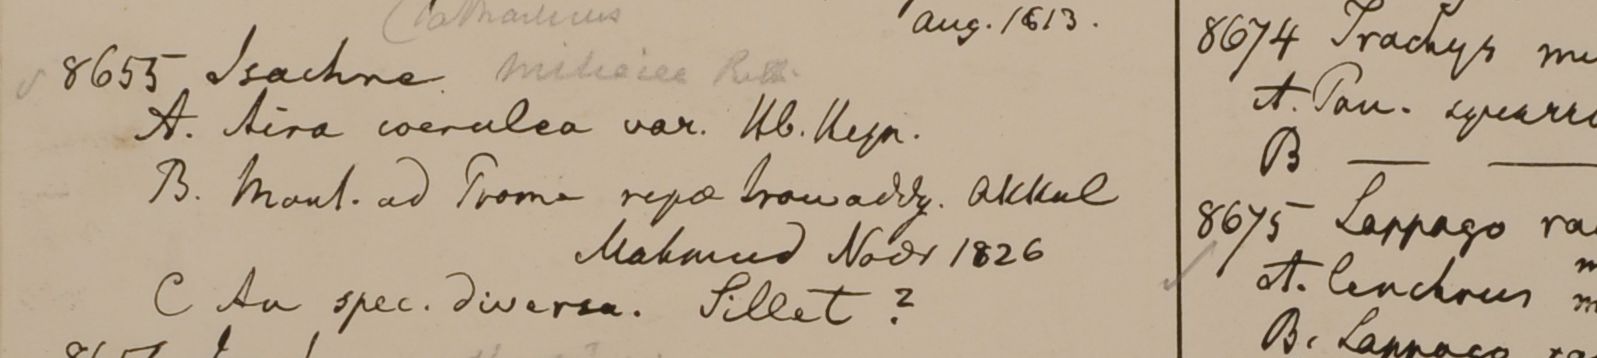 aug. 1813.
8655 Isachne miliacea Roth.
A. Aira coerulea var. Hb. Heyn.
B. Mont. ad Prome ripæ Irawaddy. Akkul
Mahmud Novr 1826
C An spec. diversa. Sillet ?
8674 Trachys mu
A. Pan. squarro
B — —
8675 Lappago ra
A. Cenchrus
B. Lappago ra